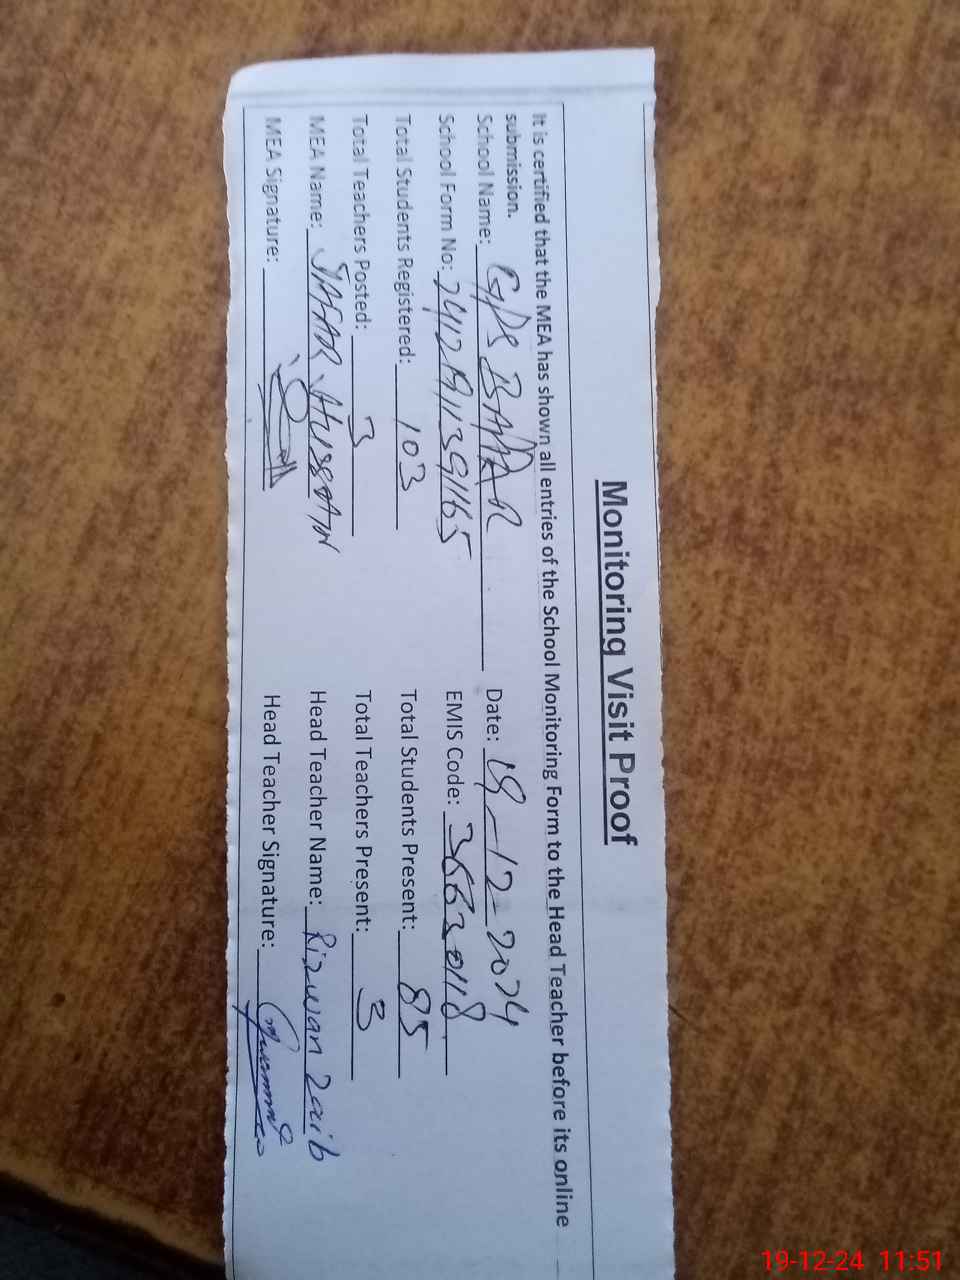 Monitoring Visit Proof
It is certified that the MEA has shown all entries of the School Monitoring Form to the Head Teacher before its online
submission.
School Name: GPS Date: -12-2024
School Form No: EMIS Code:
Total Students Registered: 103 Total Students Present: 85
Total Teachers Posted: 3 Total Teachers Present: 3
MEA Name: Head Teacher Name: Rizwan Zaib
MEA Signature: Head Teacher Signature:
19-12-24 11:51